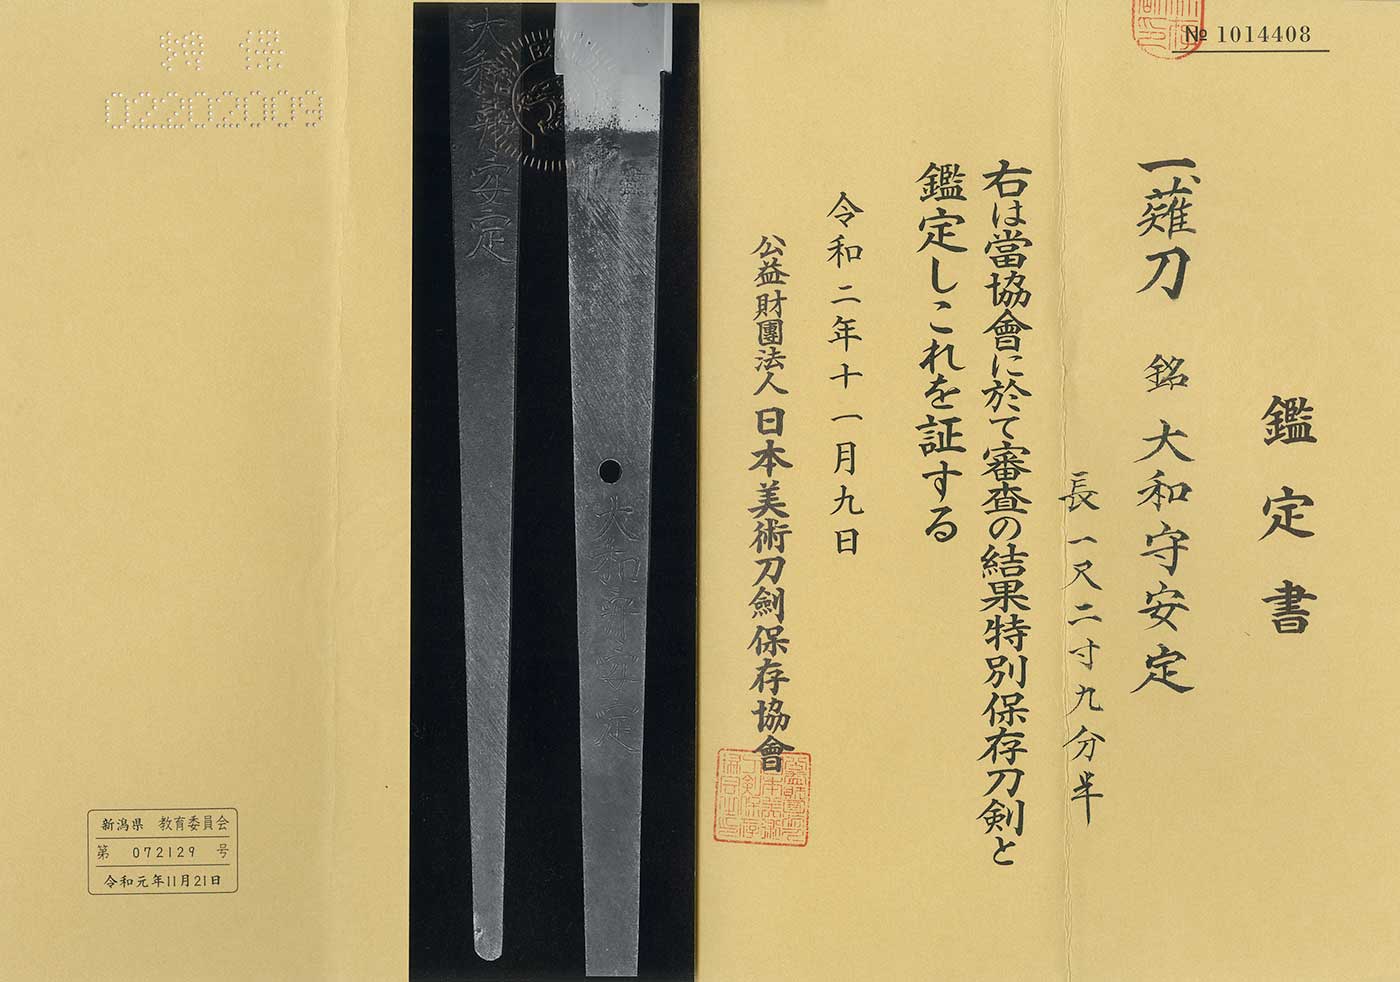 № 1014408
鑑定書
一、薙刀 銘 大和守安定
長一尺二寸九分半
右は當協會に於て審査の結果特別保存刀剣と
鑑定しこれを証する
令和二年十一月九日
公益財團法人 日本美術刀劍保存協會
大和守安定
大和守安定
02202009
新潟県 教育委員会
第 072129 号
令和元年11月21日